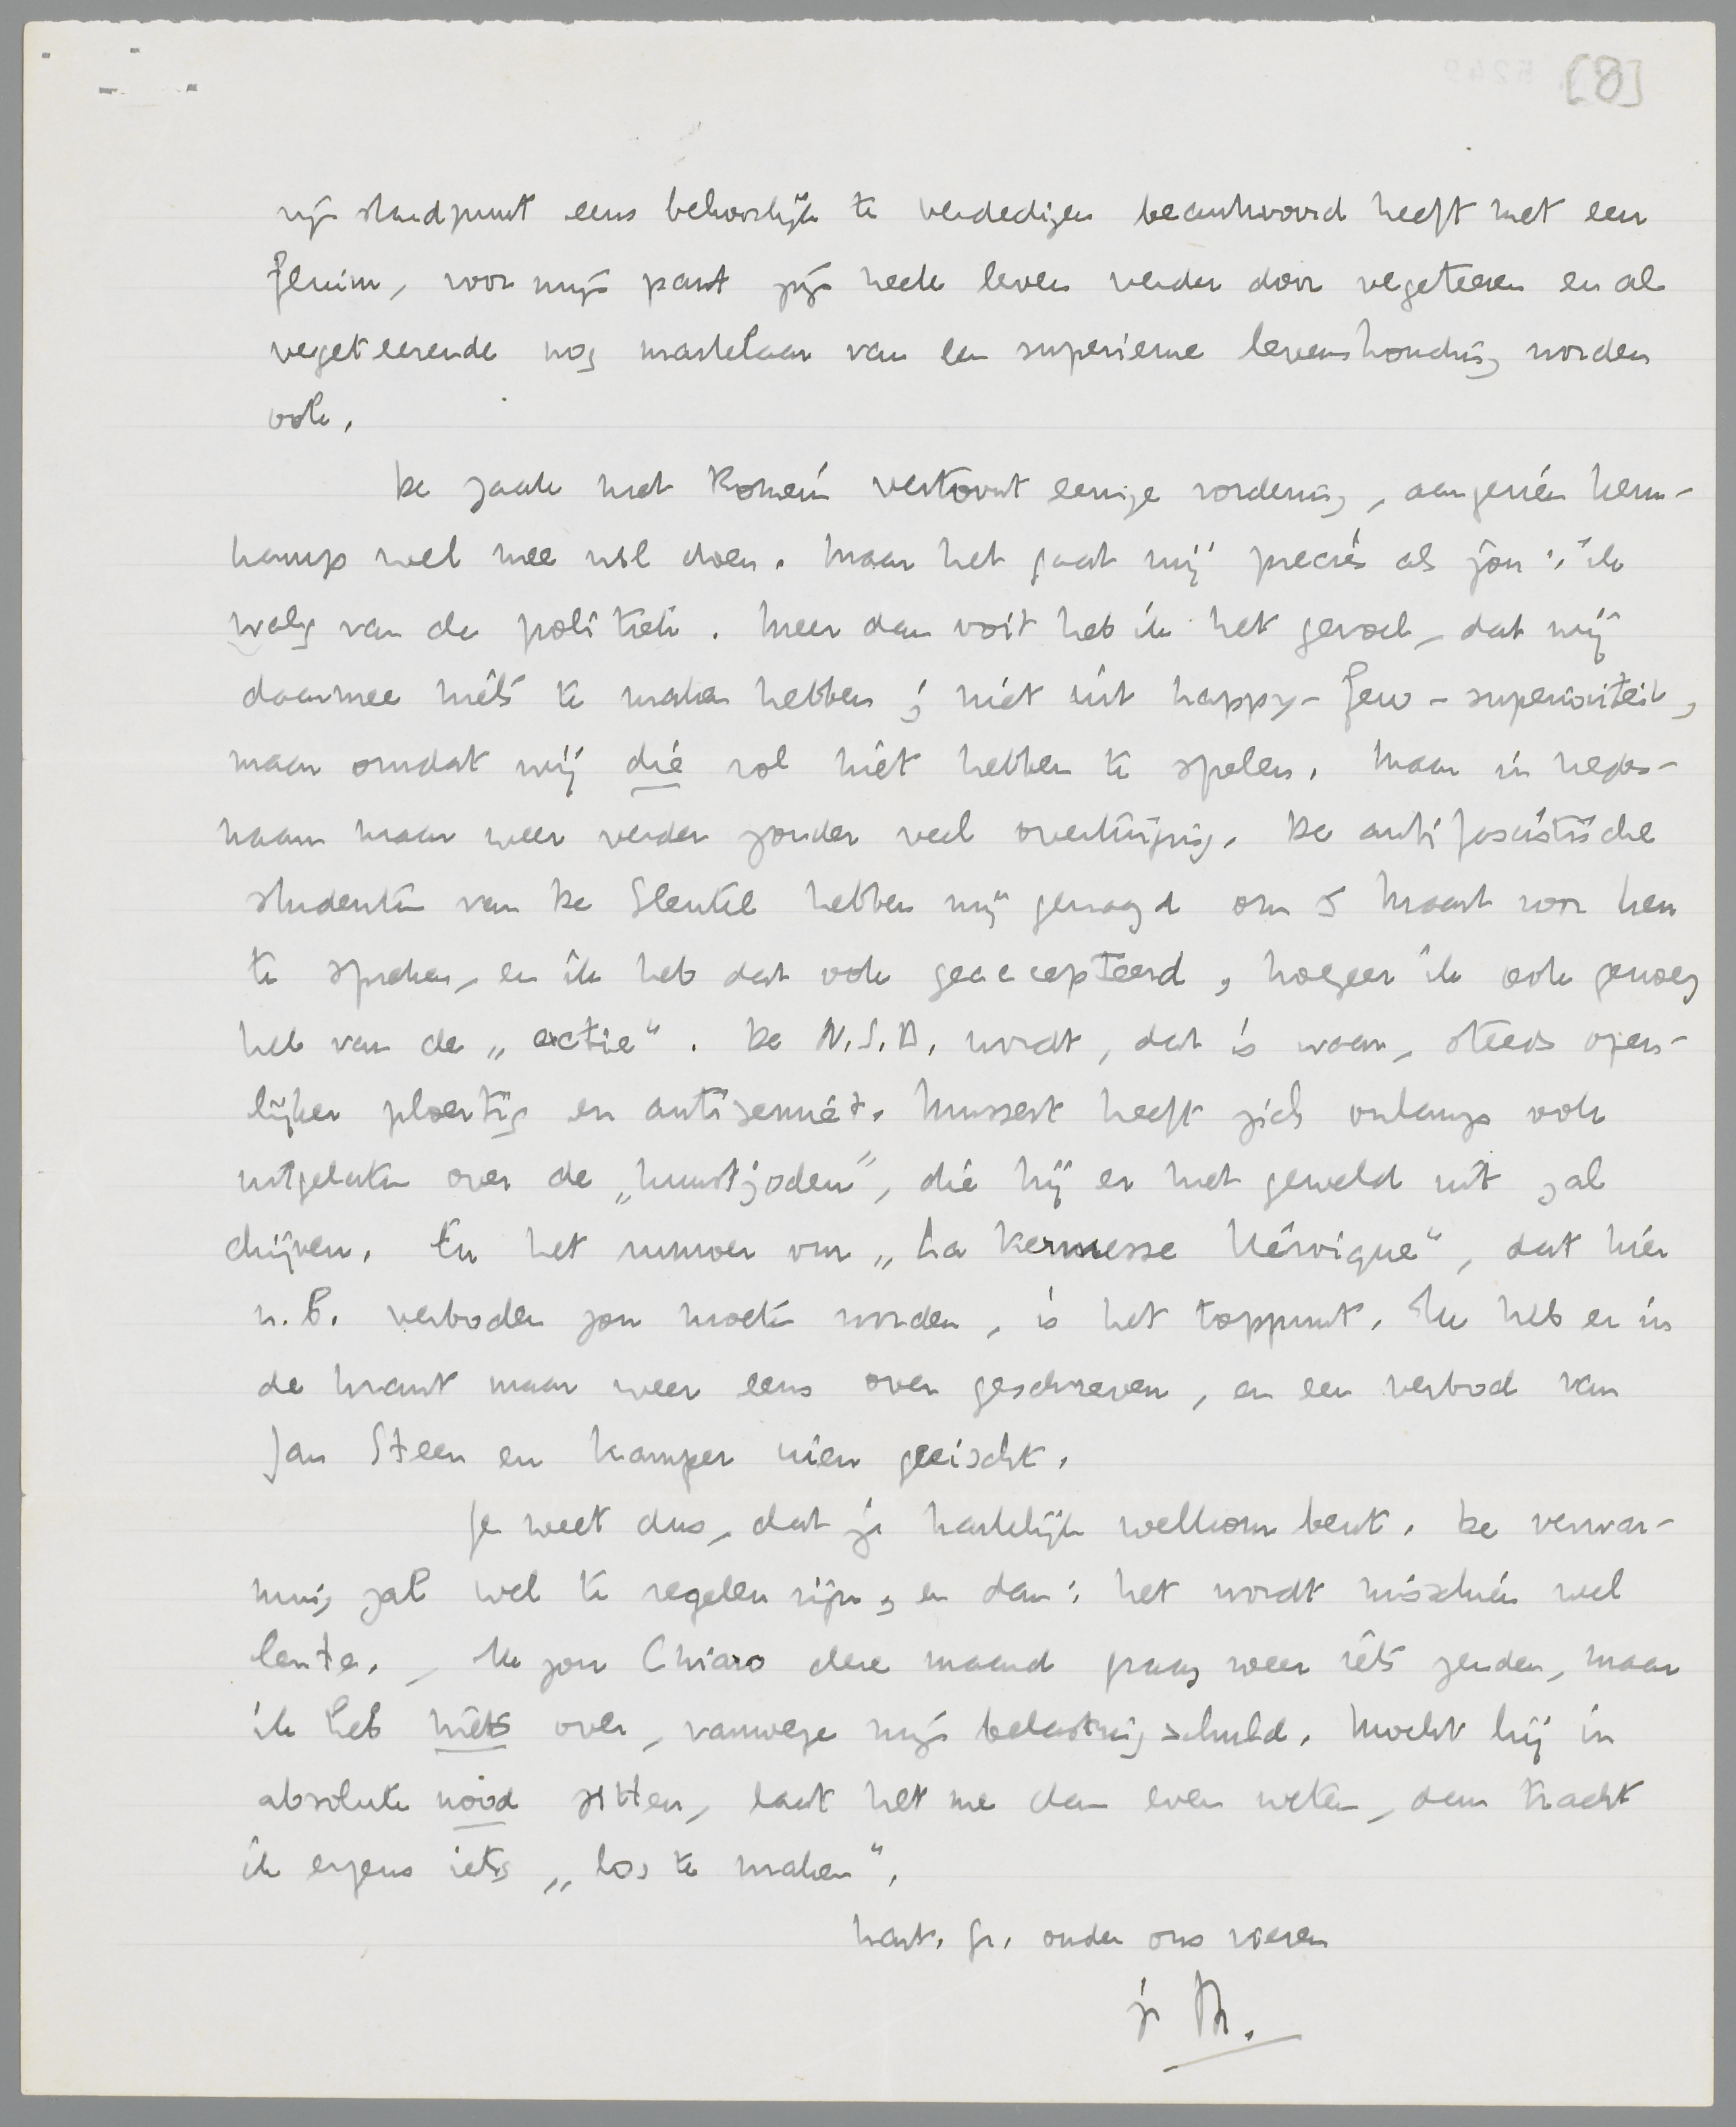 [8]
zijn standpunt eens behoorlijk te verdedigen beantwoord heeft met een
fluim, voor mijn part zijn heele leven verder door vegeteeren en al
vegeteerende nog martelaar van een superieure levenshouding worden
ook.
De zaak met Romein vertoont eenige vordering, aangezien Hem-
kamp wel mee wil doen. Maar het gaat mij precies als jou: ik
walg van de politiek. Meer dan ooit heb ik het gevoel, dat wij
daarmee niets te maken hebben; niet uit happy-few-superioriteit,
maar omdat wij die rol niet hebben te spelen. Maar in
naam maar weer verder zonder veel overtuiging. De antifascistische
studenten van De Sleutel hebben mij gevraagd om 5 Maart voor hen
te spreken, en ik heb dat ook geaccepteerd, hoezeer ik ook genoeg
heb van de „actie". De N.S.B. wordt, dat is waar, steeds open-
lijker ploertig en antisemiet. Mussert heeft zich onlangs ook
uitgelaten over de „kunstjoden", die hij er met geweld uit zal
drijven. En het rumoer om „La Kermesse Héroïque", dat hier
n.b. verboden zou moeten worden, is het toppunt. Ik heb er in
de krant maar weer eens over geschreven, en een verbod van
Jan Steen en Kamper uien geeischt.
Je weet dus, dat je hartelijk welkom bent. De verwar-
ming zal wel te regelen zijn, en dan: het wordt misschien wel
lente. – Ik zou Chiaro deze maand graag weer iets zenden, maar
ik heb niets over, vanwege mijn belastingschuld. Mocht hij in
absolute nood zitten, laat het me dan even weten, dan tracht
ik ergens iets „los te maken".
hart. gr. onder ons vieren
je M.